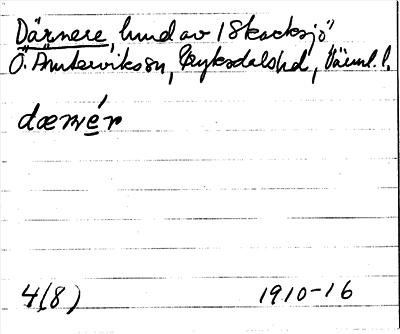 Därnere, lund av 1 Skacksjö
Ö. Ämterviks sn, Fryksdals hd, Värml. l.
dærnér
4(8) 1910-16